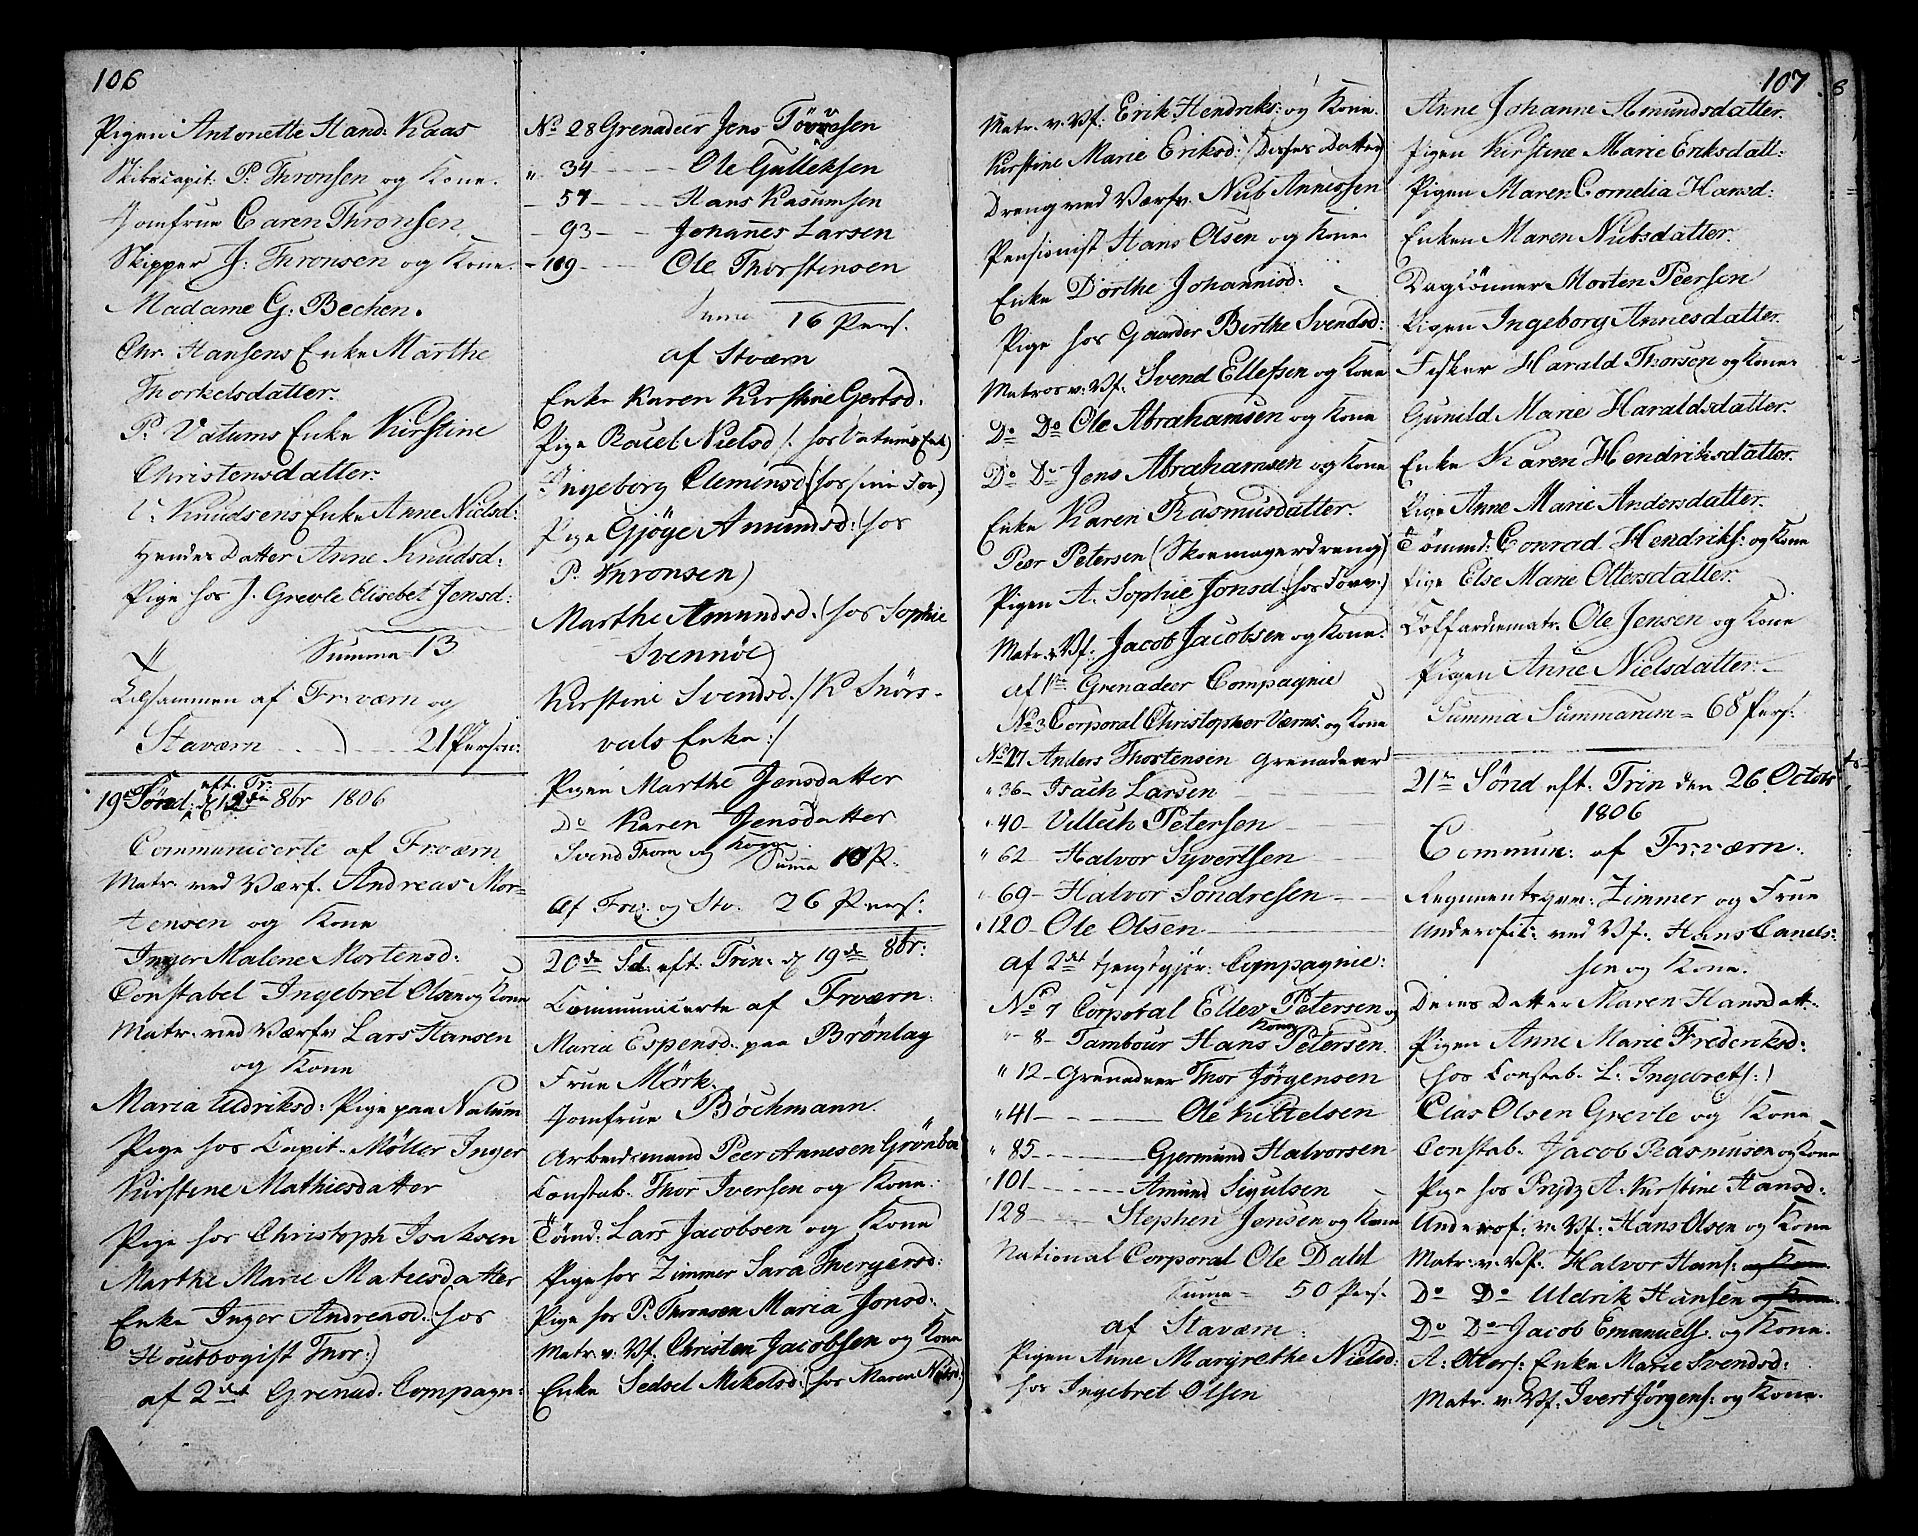 106
Pigen Antonette Hand: Kaas
Skibscapit: P: Thronsen og Kone.
Jomfrue Caren Thronsen
Skipper J: Thronsen og Kone.
Madame G: Bechen.
Chr. Hansens Enke Marthe
Thorkelsdatter.
P: Vatums Enke Kirstine
Christensdatter.
Knudsens Enke Anne Nielsd:
Hendes Datter Anne Knudsd:
Pige hos J. Grevle Elisebet Jensd:
Summa 13
Tilsammen af Fr: værn og
Staværn 21 Person:
19de Sønd: eft. Tr: d 12te 8br 1806
Communicerte af Fr.værn
Matr. ved Værf. Andreas Mor-
tensen og Kone
Inger Malene Mortensd:
Constabel Ingebret Olsen og Kone
Matr. ved Værfv Lars Hansen
og Kone
Maria Uldriksd: Pige paa Natum
Pige hos Capit. Møller Inger
Kirstine Mathiesdatter
Pige hos Christoph Isaksen
Marthe Marie Matiesdatter
Enke Inger Andreasd: (hos
Houtbogist Thor:)
af 2det Grenad. Compagn:
No 28 Grenadeer Jens Tovesen
" 34 Ole Gulleksen
- 57 - Hans Rasumsen
- 93 - Johannes Larsen
- 109 Ole Thorstensen
Summa 16 Pers.
af Stværn
Enke Karen Kirstine Gjertsd:
Pige Rauel Nielsd /: hos Vatums Enk)
Ingeborg Clemensd (hos sine For)
Pige Gjøge Amundsd: (hos
P. Thronsen)
Marthe Amundsd: (hos Sophie
Svennøe)
Kirstine Svendsd: /K Snörs-
vels Enke :/
Pigen Marthe Jensdatter
Do Karen Jensdatter
Svend Trom og Kone
Summa 10 P.
af Fri: og Stv. 26 Pers:
20de Sd: eft: Trin: d 19de 8br:
Communicerte af Frværn:
Maria Espensd: paa Brönlag
Frue Mørk.
Jomfrue Bøchmann.
Arbeidsmand Peer Annesen Grönboe
Constab. Thor Iversen og Kone.
Tömd: Lars Jacobsen og Kone
Pige hos Zimmer Sara Thergersd:
Pige hos P: Thronsen Maria Jonsd:
Matr: v: Vf. Christen Jacobsen og Kone
Enke Sedsel Mekelsd: (hos Maren Nibsd)
107
Matr. v. Vf. Erik Hendriks: og Kone.
Kirstine Marie Eriksd: (Deres Datter)
Dreng ved Værfv. Nub Annessen
Pensionist Hans Olsen og Kone
Enke Dorthe Johannisd:
Pige hos Gaarder Berthe Svendsd:
Matros v: Vf. Svend Ellefsen og Kone
Do Do Ole Abrahamsen og Kone
Do Do Jens Abrahamsen og Kone
Enke Karen Rasmusdatter.
Peer Petersen (Skoemagerdreng)
Pigen A. Sophie Jonsd: (hos Torv:)
Matr. v Vf. Jacob Jacobsen og Kone.
af 1ste Grenadeer Compagnie
No 3 Corporal Christopher Værns: og Kone
No 27 Anders Thortensen Grenadeer
" 36 - Isach Larsen
" 40 - Villech Petersen
" 62 - Halvor Syvertsen
69 - Halvor Sondresen
" 120 - Ole Olsen
af 2det tjenstgjør: Compagnie:
No 7 Corporal Ellev Petersen og
Kone
" 8 - Tambour Hans Petersen.
" 12 - Grenadeer Thor Jørgensen
" 41 Ole Kittelsen
" 85 Gjermund Halvorsen
" 101 Amund Sigulsen
128 Stephen Jensen og Kone
National Corporal Ole Dahl
Summa - 50 Pers.
af Staværn:
Pigen Anne Margrethe Nielsd:
hos Ingebret Olsen
Anne Johanne Amundsdatter.
Pigen Kirstine Marie Eriksdatt:
Pigen Maren Cornelia Hansd:
Enken Maren Nubsdatter.
Dagsönner Morten Peersen
Pigen Ingeborg Annesdatter.
Fisker Harald Thorsen og Kone
Gunild Marie Haraldsdatter.
Enke Karen Hendriksdatter.
Pige Anne Marie Andersdatter.
Tömmd: Conrad Hendriks: og Kone
Pige Else Marie Ottersdatter.
Coffardiematr. Ole Jensen og Kone
Pigen Anne Nielsdatter.
Summa Summarum = 68 Pers:
21de Sönd eft. Trin den 26 Octobr
1806
Commun: af Fr:værn:
Regimentsqvv: Zimmer og Frue
Underofit: ved Vf. Hans Canels:
sen og Kone.
Deres Datter Maren Hansdatt.
Pigen Anne Marie Frederiksd:
(hos Constab. L: Ingebrets:)
Clas Olsen Grevle og Kone
Constab. Jacob Rasmusen og Kone
Pige hos Prydz A. Kirstine Hansd:
Underof: v: Vf: Hans Olsen og Kone
Matr: v: Vf. Halvor Hans: og Kone.
Do Do Uldrik Hansen og Kone.
Do Do Jacob Emanuels. og Kone.
A: Otters: Enke Marie Svendsd:
Matr. v: Vf. Ivert Jørgens: og Kone.